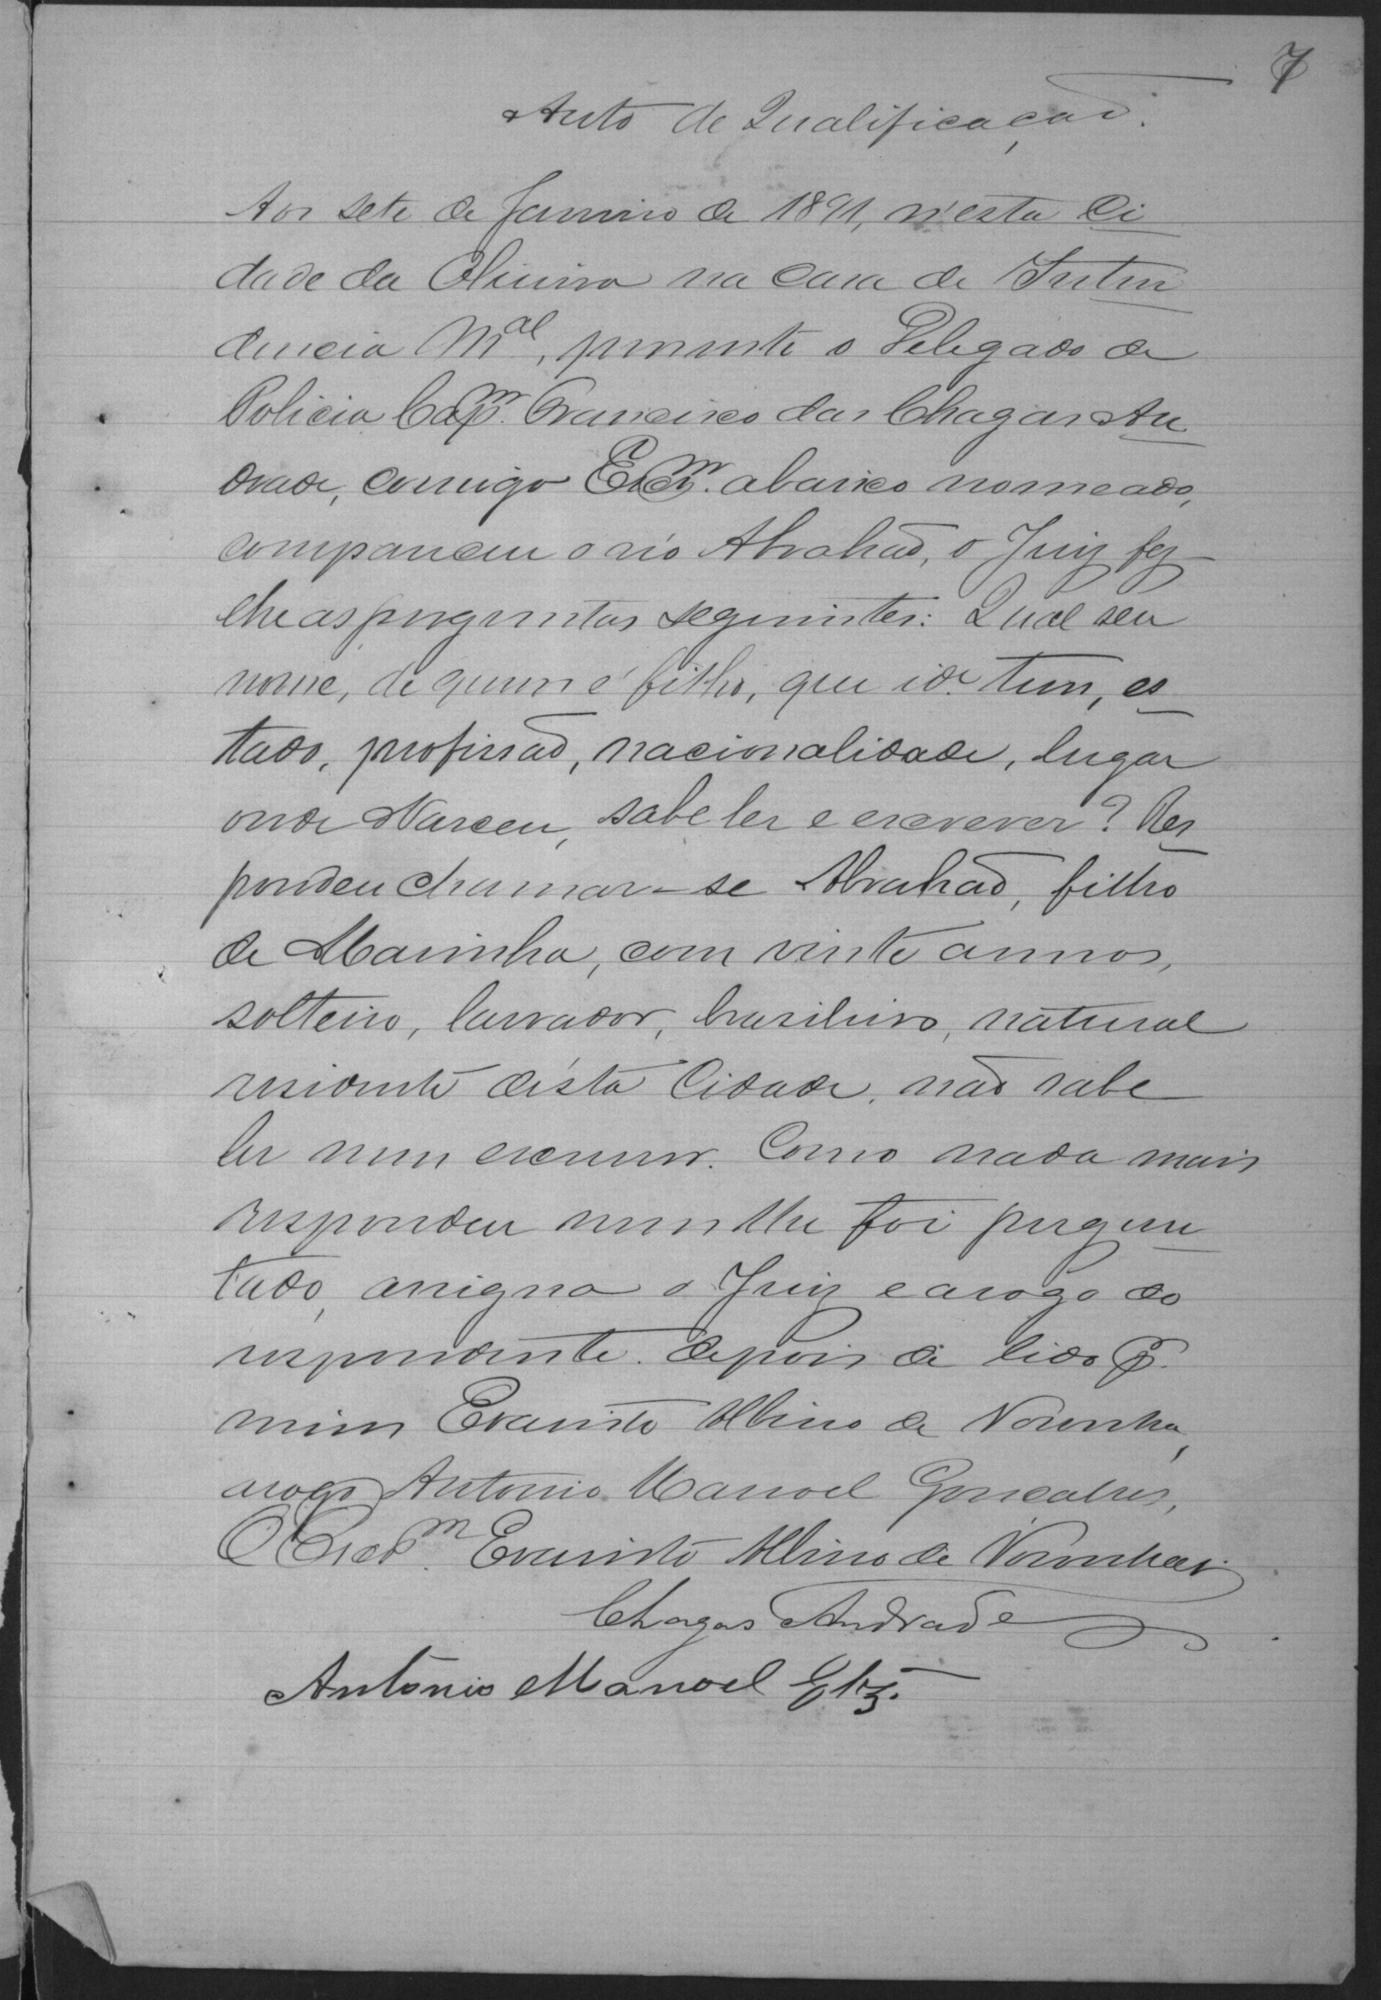 7
Auto de Qualificação.
Aos sete de Janeiro de 1891, n'esta Ci
dade da Oliveira na casa de Inten
dencia M.al, presente o Delegado de
Policia Cap.m Francisco das Chagas An
drade, comigo Escr.m abaixo nomeado,
compareceu o réo Abrahão, o Juiz fez
lhe as perguntas seguintes: Qual seu
nome, de quem é filho, que id.e tem, es
tado, profissão, nacionalidade, lugar
onde Nasceu, sabe ler e escrever? Res
pondeu chamar-se Abrahão, filho
de Marinha, com vinte annos,
solteiro, lavrador, brasileiro, natural
residente désta Cidade, não sabe
ler nem escrever. Como nada mais
respondeu nem lhe foi pergun
tado, assigna o Juiz e arogo do
respondente depois de lido p.
mim Evaristo Albino de Noronha,
arogo Antonio Manoel Goncalves,
O Escr.m Evaristo Albino de Noronha.
Chagas Andrade
Antonio Manoel Glz.